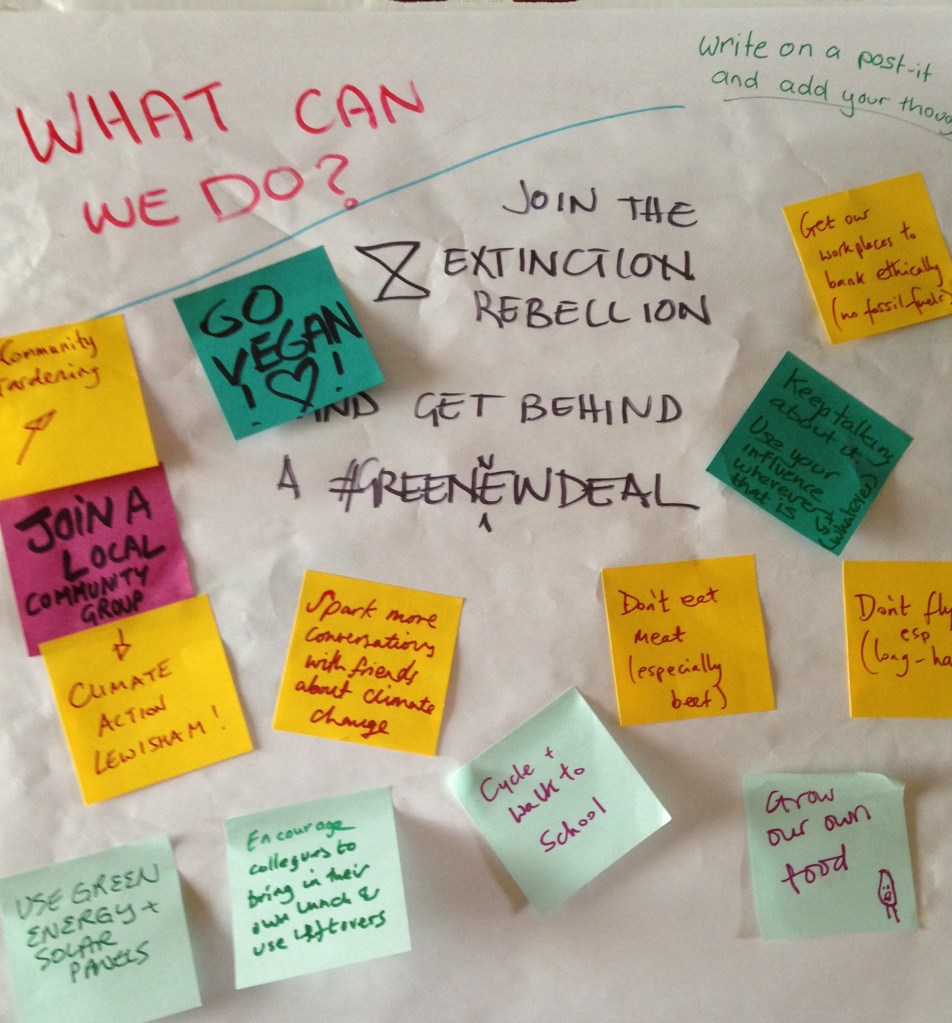 WHAT CAN
WE DO?
write on a post-it
and add your thou
JOIN THE
EXTINCTION
REBELLION
AND GET BEHIND
A #GREENEWDEAL
N
Get our
workplaces to
bank ethically
(no fossil fuels)
GO
VEGAN
! ♡!
Community
Gardening
Keep talking
about it
Use your
influence
wherever +
that is
(whatever)
JOIN A
LOCAL
COMMUNITY
GROUP
CLIMATE
ACTION
LEWISHAM!
Spark more
conversations
with friends
about climate
change
Don't eat
meat
(especially
beef)
Don't fly
esp
(long-ha
Cycle +
walk to
School
Grow
our own
food
USE GREEN
ENERGY +
SOLAR
PANELS
Encourage
collegues to
bring in their
own lunch &
use leftovers